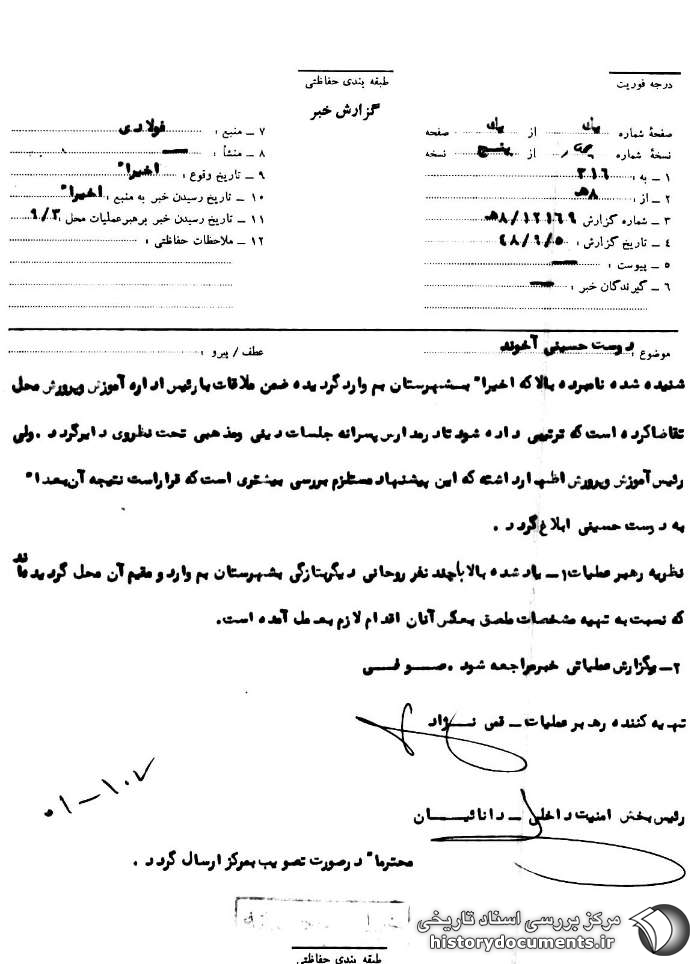 طبقه بندی حفاظتی
درجه فوریت
گزارش خبر
صفحهٔ شماره یك از یك صفحه
نسخهٔ شماره از پنج نسخه
۱ ـ به : ۳۱۶
۲ ـ از : ۸هـ
۳ ـ شماره گزارش ۸/۱۲۱۶۹هـ
۴ ـ تاریخ گزارش :
۵ ـ پیوست : ــ
۶ ـ گیرندگان خبر : ــ
۷ ـ منبع : فولادی
۸ ـ منشأ : ــ
۹ ـ تاریخ وقوع : اخیرا"
۱۰ ـ تاریخ رسیدن خبر به منبع : اخیرا"
۱۱ ـ تاریخ رسیدن خبر برهبرعملیات محل : ۹/۳
۱۲ ـ ملاحظات حفاظتی :
موضوع : دوست حسینی آخوند
عطف / پیرو :
شنیده شده نامبرده بالاکه اخیرا" بشهرستان بم واردگردیده ضمن ملاقات بارئیس اداره آموزش وپرورش محل
تقاضاکرده است که ترتیبی داده شود تادرمدارس پسرانه جلسات دینی ومذهبی تحت نظروی دایرگردد .ولی
رئیس آموزش وپرورش اظهارداشته که این پیشنهاد مستلزم بررسی بیشتری است که قراراست نتیجه آن بعدا"
به دوست حسینی ابلاغ گردد .
نظریه رهبرعملیات ۱ـ یادشده بالا باچند نفر روحانی دیگربتازگی بشهرستان بم وارد و مقیم آن محل گردیده‌اند
که نسبت به تهیه مشخصات ملصق بعکس آنان اقدام لازم بعمل آمده است.
۲ـ بگزارش عملیاتی خبرمراجعه شود .صوفی
تهیه کننده رهبرعملیات ـ قس نژاد
رئیس بخش امنیت داخلی ـ دانائیان
۰۱-۱۰۷
محترما" درصورت تصویب بمرکز ارسال گردد .
طبقه بندی حفاظتی
مرکز بررسی اسناد تاریخی
historydocuments.ir